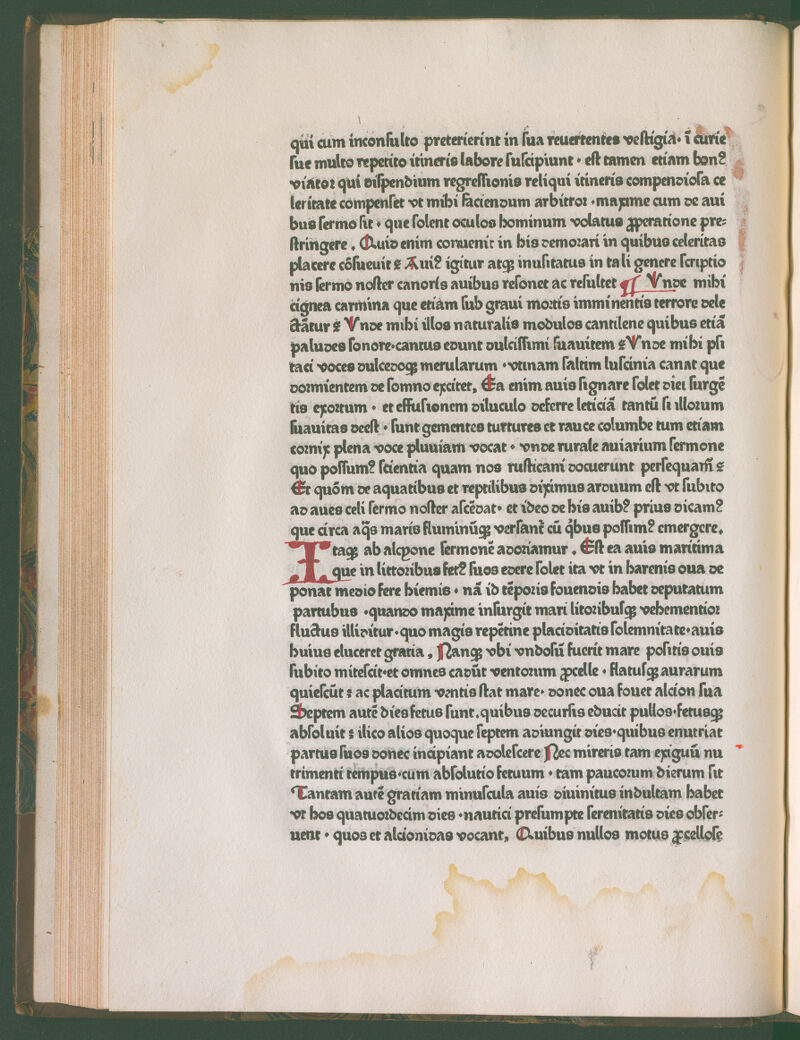 qui cum inconſulto preterierint in ſua reuertentes veſtigia· ī curie
ſue multo repetito itineris labore ſuſcipiunt · eſt tamen etiam bonꝰ
viatoꝛ qui diſpendium regreſſionis reliqui itineris compendioſa ce
leritate compenſet vt mihi faciendum arbitroꝛ ·maxime cum de aui
bus ſermo ſit · que ſolent oculos hominum volatus ꝓperatione pre⸗
ſtringere . Quid enim conuenit in his demoꝛari in quibus celeritas
placere cōſueuit ? Auiū igitur atqꝫ inuſitatus in tali genere ſcriptio
nis ſermo noſter canoris auibus reſonet ac reſultet ¶ Vnde mihi
cignea carmina que etiam ſub graui moꝛtis imminentis terrore dele
ctātur ? Vnde mihi illos naturalis modulos cantilene quibus etiā
paludes ſonore·cantus edunt dulciſſimi ſuauitem ?Vnde mihi pſi
taci voces dulcedoqꝫ merularum ·vtinam ſaltim luſcinia canat que
doꝛmientem de ſomno excitet, Ea enim auis ſignare ſolet diei ſurgē
tis exoꝛtum · et effuſionem diluculo deferre leticiā tantū ſi illoꝛum
ſuauitas deeſt · ſunt gementes turtures et rauce columbe tum etiam
coꝛnix plena voce pluuiam vocat · vnde rurale auiarium ſermone
quo poſſumꝰ ſcientia quam nos ruſticani docuerunt perſequam̄ ?
Et quōm de aquatibus et reptilibus diximus arduum eſt vt ſubito
ad aues celi ſermo noſter aſcēdat· et ideo de his auibꝰ prius dicam?
que circa aq̄s maris fluminūqꝫ verſant̄ cū q̄bus poſſimꝰ emergere.
Itaqꝫ ab alcyone ſermonē adoꝛiamur . Eſt ea auis maritima
que in littoꝛibus fetꝰ ſuos edere ſolet ita vt in harenis oua de
ponat medio fere hiemis · nā id tēpoꝛis fouendis habet deputatum
partubus ·quando maxime inſurgit mari litoꝛibuſqꝫ vehementioꝛ
fluctus illiditur·quo magis repētine placiditatis ſolemnitate·auis
huius eluceret gratia . Nanqꝫ vbi vndoſū fuerit mare poſitis ouis
ſubito miteſcit·et omnes cadūt ventoꝛum ꝓcelle · flatuſqꝫ aurarum
quieſcūt : ac placitum ventis ſtat mare· donec oua fouet alcion ſua
Septem autē dies fetus ſunt.quibus decurſis educit pullos·fetusqꝫ
abſoluit : ilico alios quoque ſeptem adiungit dies·quibus enutriat
partus ſuos donec incipiant adoleſcere Nec mireris tam exiguū nu
trimenti tempus·cum abſolutio fetuum · tam paucoꝛum dierum ſit
Tantam autē gratiam minuſcula auis diuinitus indultam habet
vt hos quatuoꝛdecim dies ·nautici preſumpte ſerenitatis dies obſer⸗
uent · quos et alcionidas vocant, Quibus nullos motus ꝓcelloſe